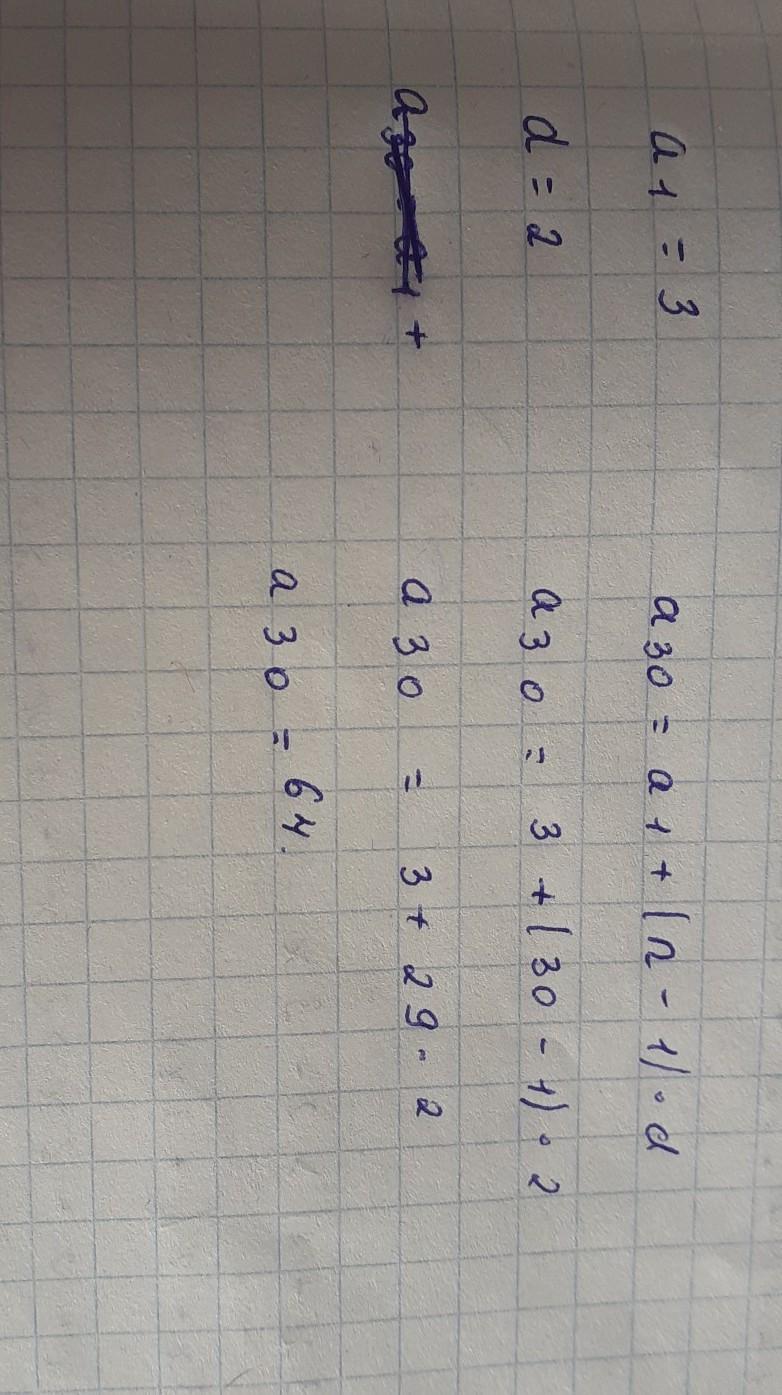 a1 = 3
d = 2
+
a30 = a1 + (n - 1) · d
a30 = 3 + (30 - 1) · 2
a30 = 3 + 29 · 2
a30 = 64.